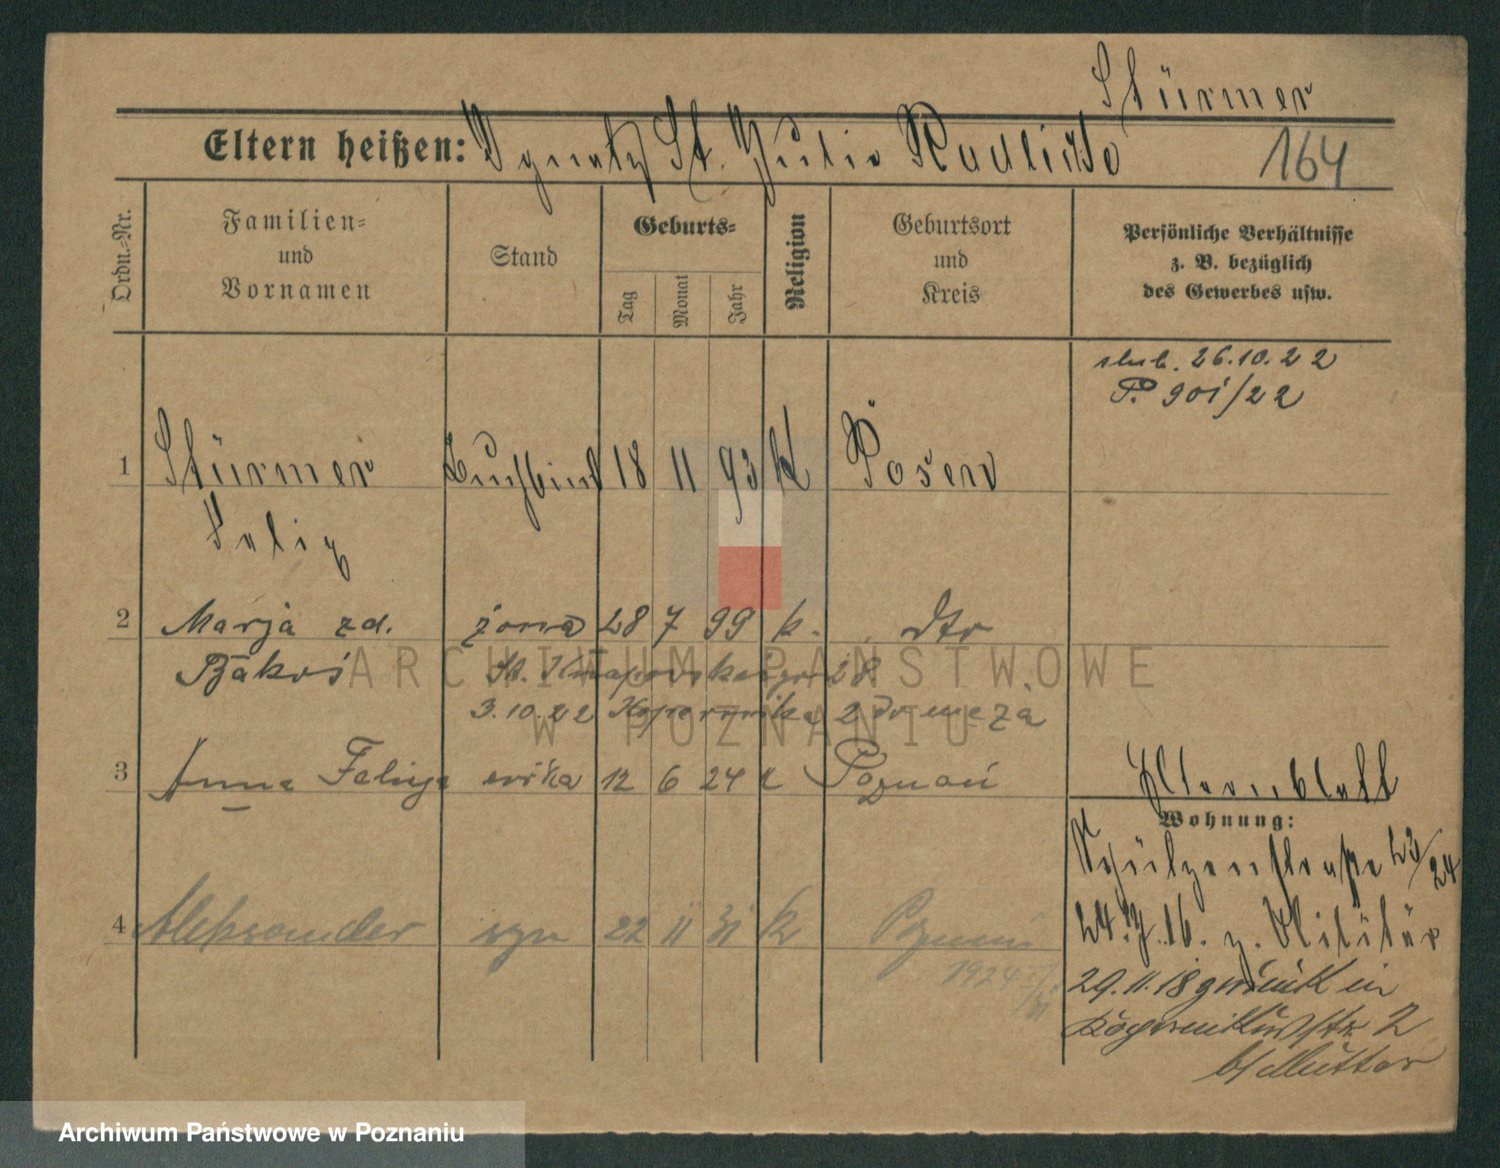 Stürmer
Eltern heißen: Ignatz St. Julie Radlicke
164
Ordn.-Nr.
Familien-
und
Vornamen
Stand
Geburts-
Tag
Monat
Jahr
Religion
Geburtsort
und
Kreis
Persönliche Verhältnisse
z. B. bezüglich
des Gewerbes usw.
slub. 26.10.22
P. 901/22
1 Stürmer Buchbind 18 11 93 K Posen
Felix
2 Marja zd. żona 28 7 99 k. dto
Bąkoś St. Knapowskiego 28
3.10.22 Kopernika 2 do męża
3 Anna Felicja córka 12 6 24 k Poznań
Elternblatt
Wohnung:
Schützenstraße 23/24
4 Aleksander syn 22 11 31 k Poznań
24.7.16. z. Militär
1924
29.11.18 zurück in
Kopernikusstr. 2
b/ Mutter
ARCHIWUM PAŃSTWOWE
W POZNANIU
Archiwum Państwowe w Poznaniu